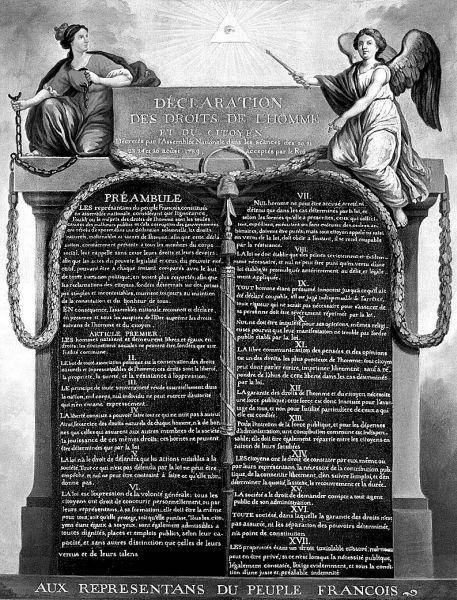 DÉCLARATION
DES DROITS DE L'HOMME
ET DU CITOYEN,
Décretés par l'Assemblée Nationale dans les séances des 20, 21
23, 24 et 26 août 1789, Acceptés par le Roi
PRÉAMBULE
LES représentans du peuple François, constitués
en assemblée nationale, considérant que l'ignorance,
l'oubli ou le mépris des droits de l'homme sont les seules
causes des malheurs publics et de la corruption des gouvernemens
tion, constamment présente à tous les membres du corps
social, leur rappelle sans cesse leurs droits et leurs devoirs;
afin que les actes du pouvoir législatif et ceux du pouvoir exé-
cutif, pouvant être à chaque instant comparés avec le but
de toute institution politique, en soient plus respectés; afin que
les réclamations des citoyens, fondées désormais sur des princi-
pes simples et incontestables, tournent toujours au maintien
de la constitution et du bonheur de tous.
EN conséquence, l'assemblée nationale reconnoit et déclare,
en présence et sous les auspices de l'Être suprême les droits
suivans de l'homme et du citoyen.
ARTICLE PREMIER.
LES hommes naissent et demeurent libres et égaux en
droits. les distinctions sociales ne peuvent être fondées que sur
l'utilité commune.
II.
LE but de toute association politique est la conservation des droits
naturels et imprescriptibles de l'homme; ces droits sont la liberté,
la propriété, la sureté, et la résistance à l'oppression.
III.
LE principe de toute souveraineté réside essentiellement dans
la nation, nul corps, nul individu ne peut exercer d'autorité
qui n'en émane expressement.
IV.
LA liberté consiste à pouvoir faire tout ce qui ne nuit pas à autrui
Ainsi, l'exercice des droits naturels de chaque homme, n'a de bor-
nes que celles qui assurent aux autres membres de la société
la jouissance de ces mêmes droits; ces bornes ne peuvent
être déterminées que par la loi.
V.
LA loi n'a le droit de défendre que les actions nuisibles à la
société. Tout ce qui n'est pas défendu par la loi ne peut être
empêché, et nul ne peut être contraint à faire ce qu'elle n'or-
donne pas.
VI.
LA loi est l'expression de la volonté générale; tous les
citoyens ont droit de concourir personnellement, ou par
leurs représentans, à sa formation; elle doit être la même
pour tous, soit qu'elle protege, soit qu'elle punisse. Tous les cito-
yens étant égaux à ses yeux, sont également admissibles à
toutes dignités, places et emplois publics, selon leur ca-
pacité, et sans autres distinction que celles de leurs
vertus et de leurs talens
VII.
NUL homme ne peut être accusé, arreté, ni
détenu que dans les cas déterminés par la loi, et
selon les formes qu'elle a prescrites, ceux qui sollici-
tent, expédient, exécutent ou font exécuter des ordres ar-
bitraires, doivent être punis; mais tout citoyen appelé ou saisi
en vertu de la loi, doit obéir à l'instant, il se rend coupable
par la résistance.
VIII.
LA loi ne doit établir que des peines strictement et évidem-
ment nécessaire, et nul ne peut être puni qu'en vertu d'une
loi établie et promulguée antérieurement au délit, et légale-
ment appliquée.
IX.
TOUT homme étant présumé innocent jusqu'à ce qu'il ait
été déclaré coupable, s'il est jugé indispensable de l'arrêter,
toute rigueur qui ne serait pas nécessaire pour s'assurer de
sa personne doit être sévèrement réprimée par la loi.
X.
NUL ne doit être inquiété pour ses opinions, mêmes religi-
euses pourvu que leur manifestation ne trouble pas l'ordre
public établi par la loi.
XI.
LA libre communication des pensées et des opinions
est un des droits les plus précieux de l'homme; tout citoyen
peut donc parler, écrire, imprimer librement: sauf à ré-
pondre de l'abus de cette liberté dans les cas déterminés
par la loi.
XII.
LA garantie des droits de l'homme et du citoyen nécessite
une force publique; cette force est donc instituée pour l'avan-
tage de tous, et non pour l'utilité particulière de ceux à qui
elle est confiée.
XIII.
POUR l'entretien de la force publique, et pour les dépenses
d'administration, une contribution commune est indispen-
sable; elle doit être également répartie entre les citoyens en
raison de leurs facultés.
XIV.
LES citoyens ont le droit de constater par eux même ou
par leurs représentans, la nécessité de la contribution pub-
lique, de la consentir librement, d'en suivre l'emploi, et d'en
déterminer la quotité, l'assiette, le recouvrement et la durée.
XV.
LA société a le droit de demander compte à tout agent
public de son administration.
XVI.
TOUTE société, dans laquelle la garantie des droits n'est
pas assurée, ni les séparation des pouvoirs déterminée,
n'a point de constitution.
XVII.
LES propriétés étant un droit inviolable et sacré, nul ne
peut en être privé, si ce n'est lorsque la nécessité publique,
légalement constatée, l'exige évidemment, et sous la condi-
tion d'une juste et préalable indemnité
AUX REPRESENTANS DU PEUPLE FRANCOIS